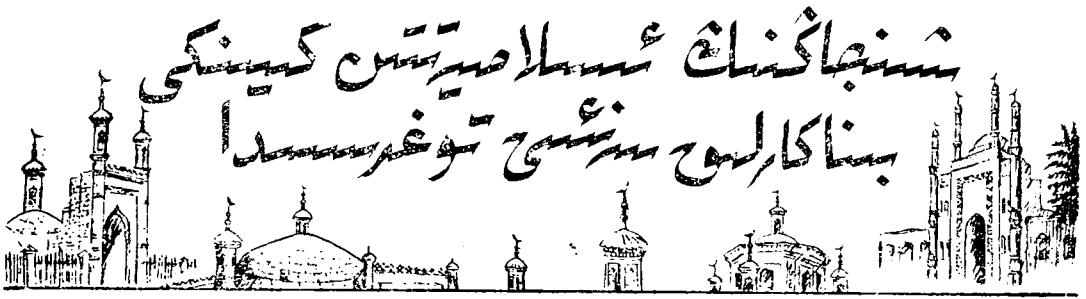 شىنجاڭنىڭ ئىسلامىيەتتىن كېيىنكى
بىناكارلىق سەنئىتى توغرىسىدا